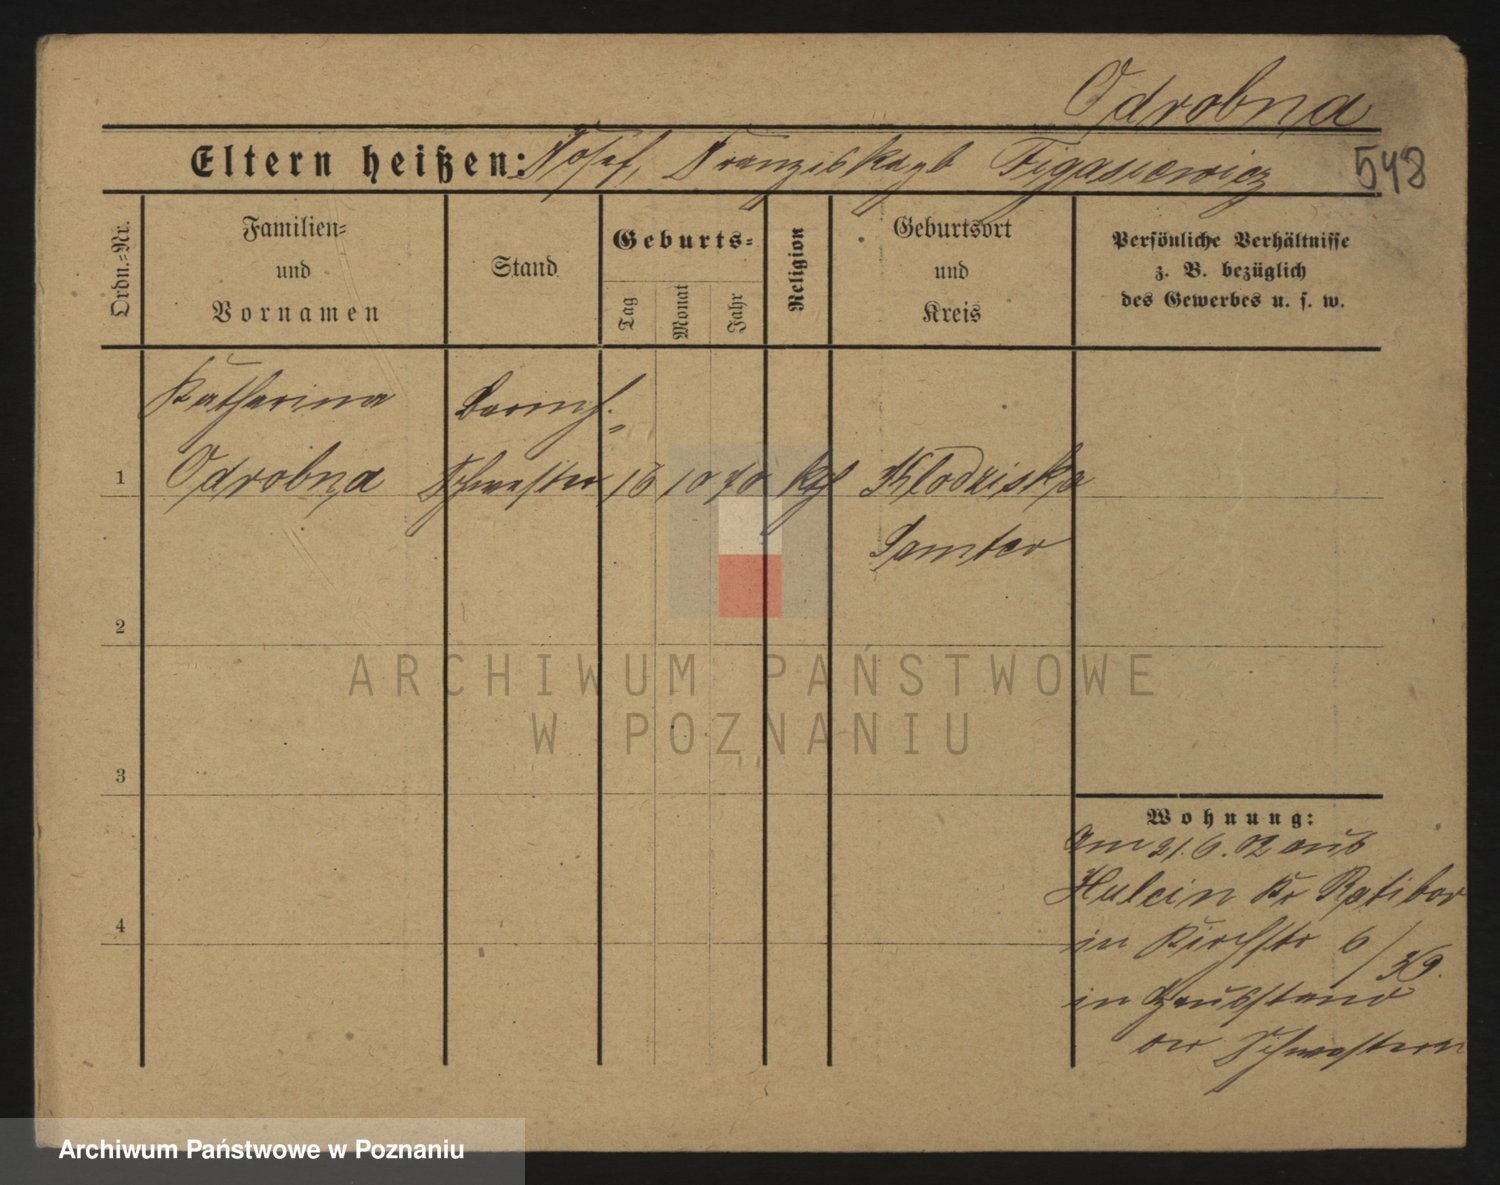 Odrobna
Eltern heißen: Josef, Franziska geb Figasiewicz
548
Ordn.-Nr.
Familien-
und
Vornamen
Stand
Geburts-
Tag
Monat
Jahr
Religion
Geburtsort
und
Kreis
Persönliche Verhältnisse
z. B. bezüglich
des Gewerbes u. s. w.
Katharina
Barmh.
1 Odrobna Schwester 16 10 70 kath Klodziska
Samter
2
ARCHIWUM PAŃSTWOWE
W POZNANIU
3
Wohnung:
Am 21.6.02 aus
Hulcin Kr Ratibor
4
in Kirchstr 6/39.
in Hausstand
der Schwestern
Archiwum Państwowe w Poznaniu